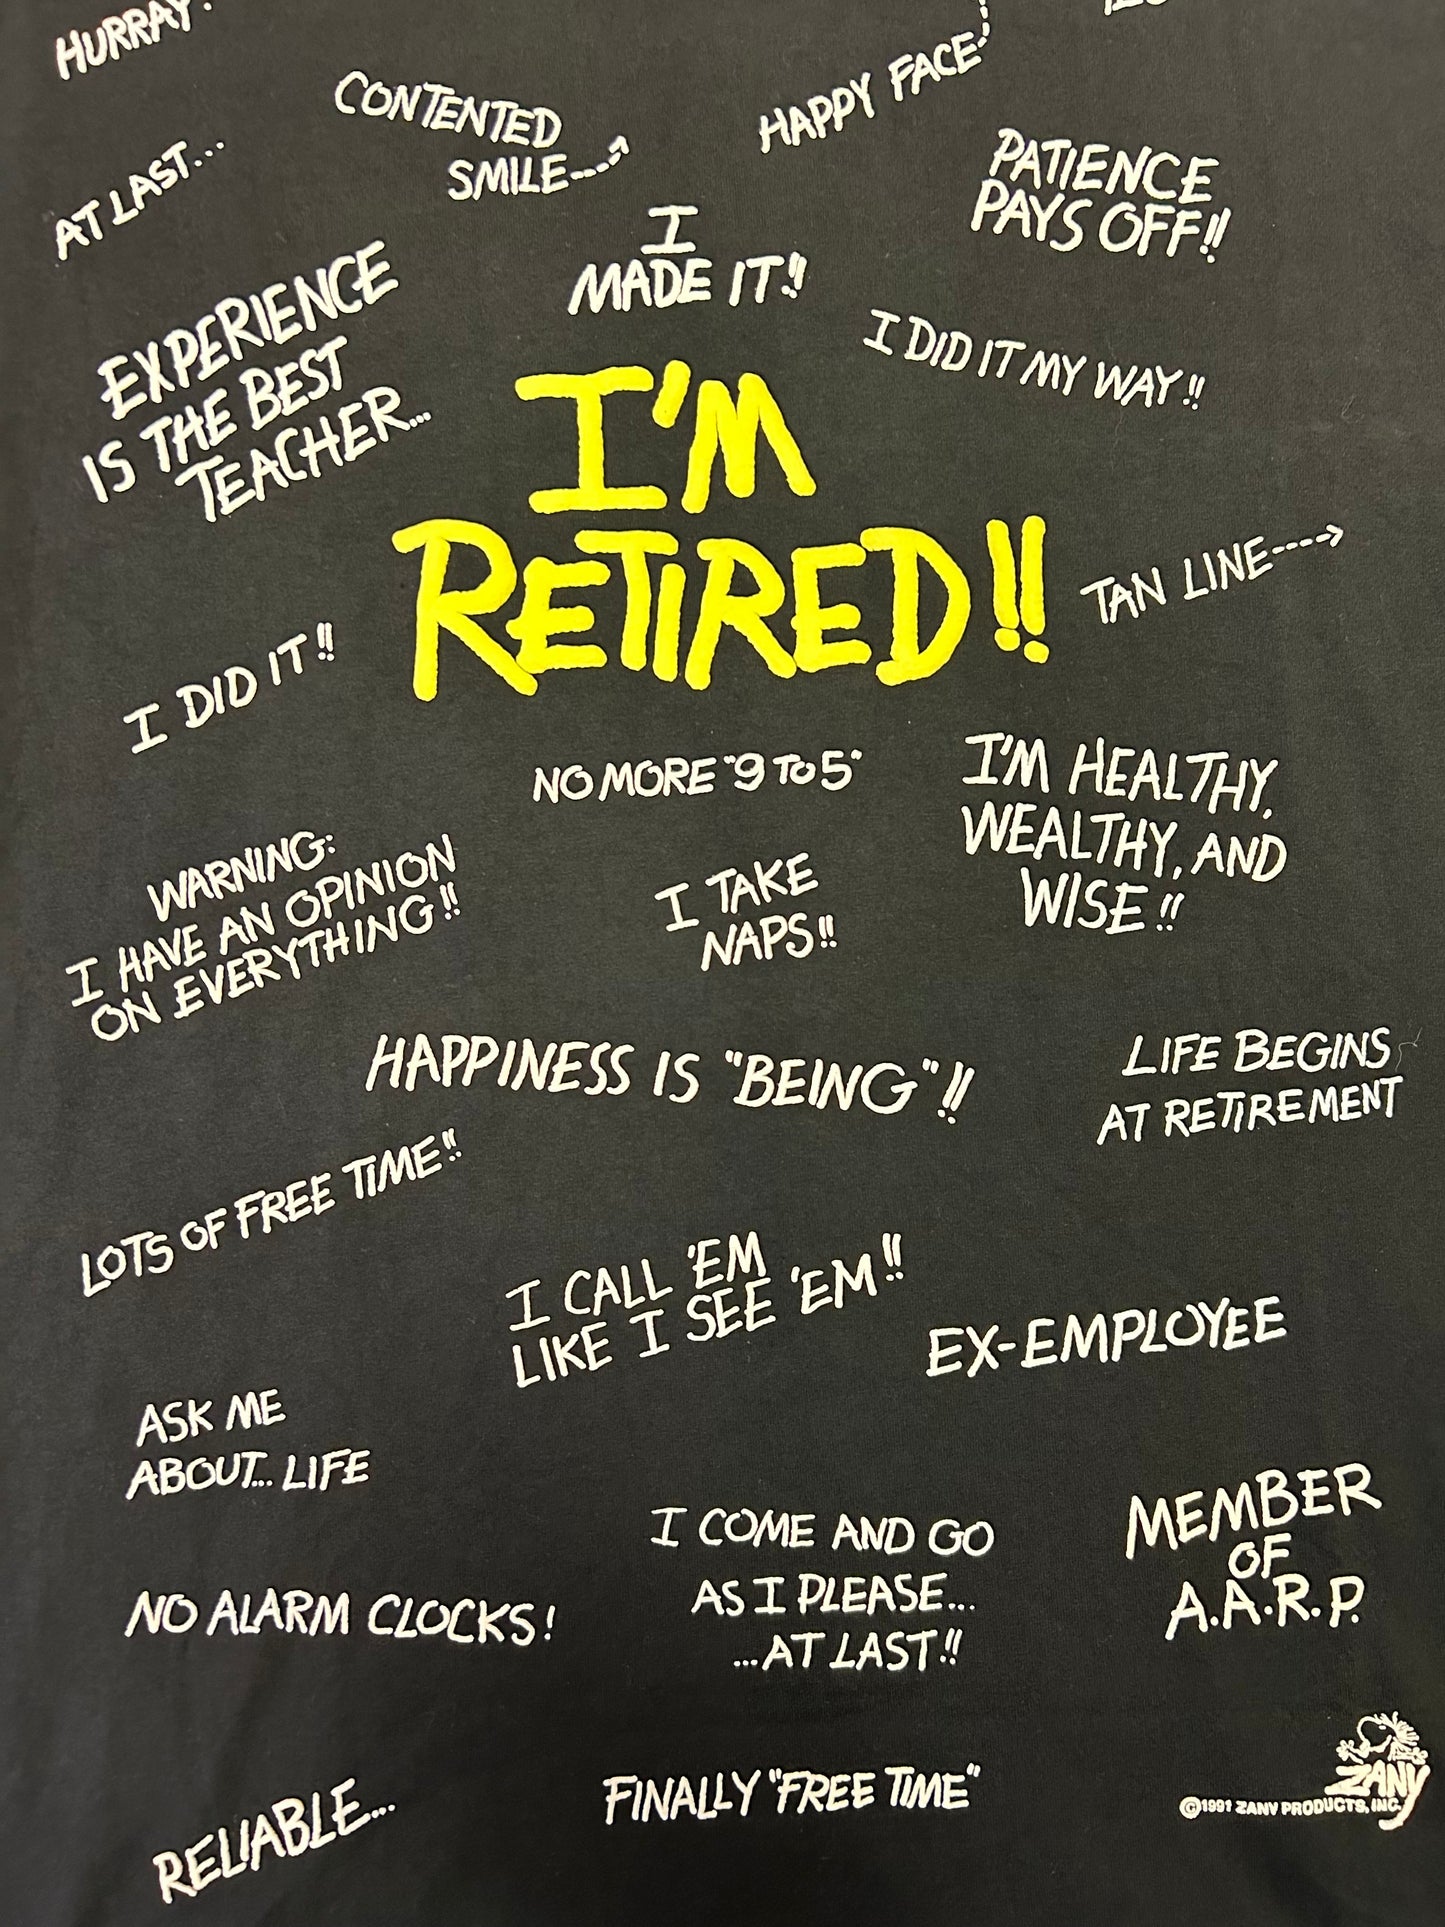 HURRAY!
CONTENTED
SMILE--->
HAPPY FACE
AT LAST...
PATIENCE
PAYS OFF!!
I
MADE IT!!
EXPERIENCE
IS THE BEST
TEACHER...
I DID IT MY WAY!!
I'M
RETIRED!!
TAN LINE---->
I DID IT!!
NO MORE "9 TO 5"
I'M HEALTHY,
WEALTHY, AND
WISE!!
WARNING:
I HAVE AN OPINION
ON EVERYTHING!!
I TAKE
NAPS!!
HAPPINESS IS "BEING"!!
LIFE BEGINS
AT RETIREMENT
LOTS OF FREE TIME!!
I CALL 'EM
LIKE I SEE 'EM!!
EX-EMPLOYEE
ASK ME
ABOUT... LIFE
I COME AND GO
AS I PLEASE...
...AT LAST!!
MEMBER
OF
A.A.R.P.
NO ALARM CLOCKS!
RELIABLE...
FINALLY "FREE TIME"
ZANY
©1991 ZANY PRODUCTS, INC.